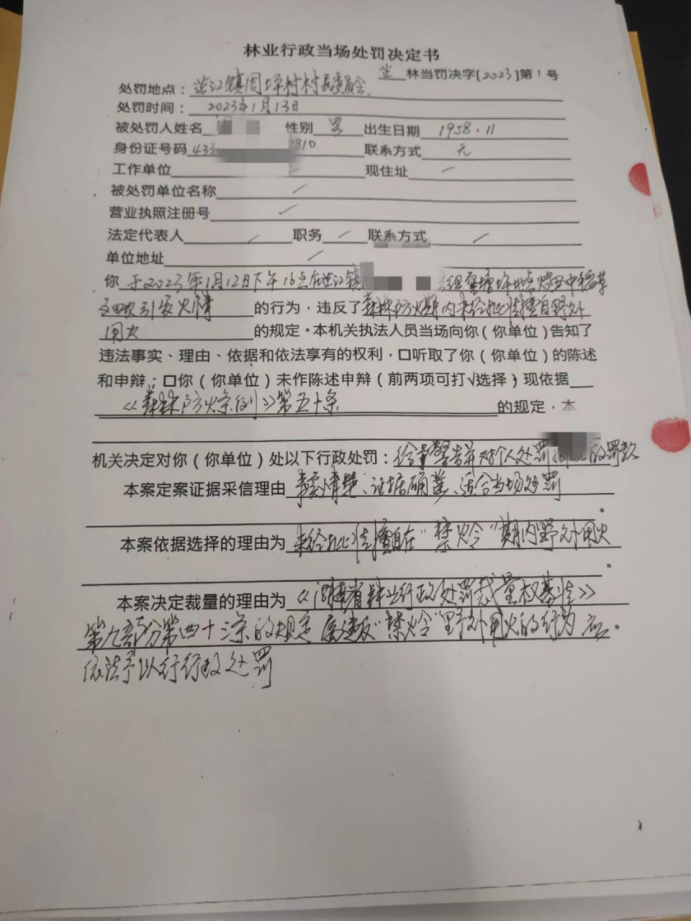 林业行政当场处罚决定书
芷林当罚决字[2023]第1号
处罚地点：芷江镇周坪村村民委员会
处罚时间：2023年1月13日
被处罚人姓名 性别 男 出生日期 1958.11
身份证号码 433 1810 联系方式 无
工作单位 现住址
被处罚单位名称
营业执照注册号
法定代表人 职务 联系方式
单位地址
你于2023年1月12日下午16点在芷江镇
引发火情 的行为，违反了森林防火期内未经批准擅自野外
用火 的规定。本机关执法人员当场向你（你单位）告知了
违法事实、理由、依据和依法享有的权利，口听取了你（你单位）的陈述
和申辩；口你（你单位）未作陈述申辩（前两项可打√选择）现依据
《森林防火条例》第五十条 的规定，本
机关决定对你（你单位）处以下行政处罚：给予警告并对个人处罚 的罚款
本案定案证据采信理由 事实清楚、证据确凿、适合当场处罚。
本案依据选择的理由为 未经批准擅自在“禁火令”期内野外用火。
本案决定裁量的理由为《湖南省林业行政处罚裁量权基准》
第九部分第四十三条的规定 属违反“禁火令”野外用火的行为 应。
依法予以行政处罚